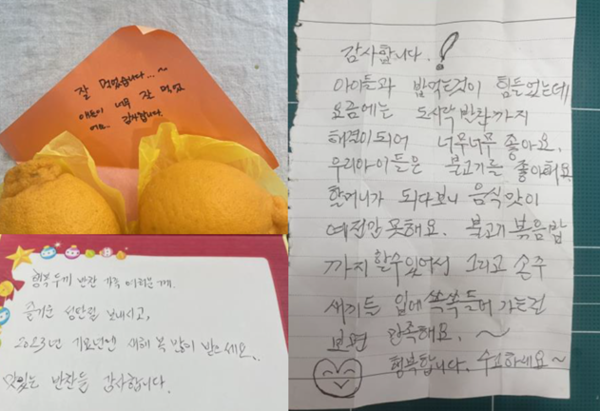 잘 먹었습니다...~
아이들이 너무 잘 먹었
어요. 감사합니다.
행복두끼 반찬 가족 여러분께.
즐거운 성탄절 보내시고,
2023년 계묘년엔 새해 복 많이 받으세요.
맛있는 반찬들 감사합니다.
감사합니다.!
아이들과 밥먹는것이 힘들었는데
요즘에는 도시락 반찬까지
해결이되어 너무너무 좋아요.
우리아이들은 불고기를 좋아해요
할머니가 되다보니 음식맛이
예전만 못해요. 불고기 볶음밥
까지 할수있어서 그리고 손주
새끼들 입에 쏙쏙들어 가는걸
보면 만족해요. ~
행복합니다. 수고하세요~